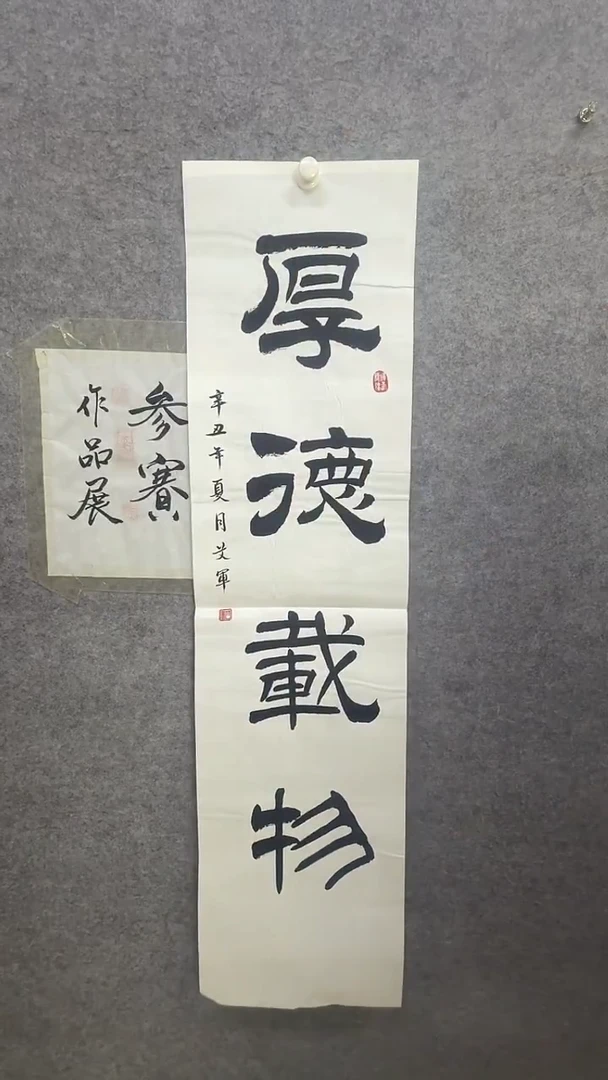 厚德載物
辛丑年夏月
軍
参賽
作品展